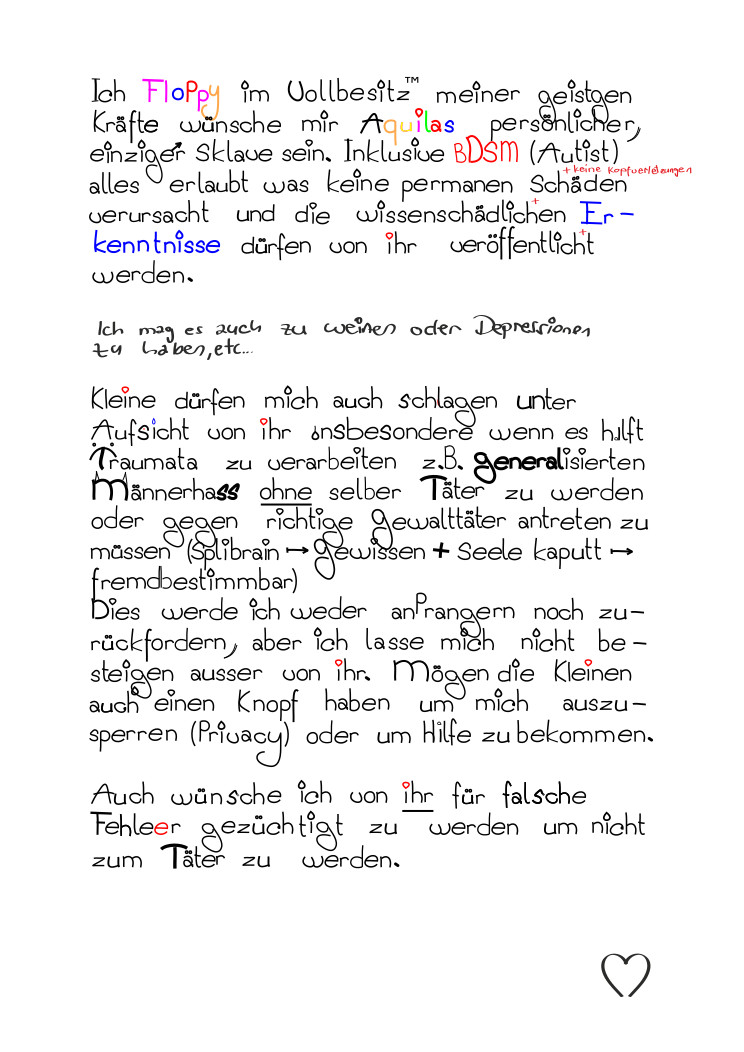 Ich Floppy im Vollbesitz™ meiner geistgen
Kräfte wünsche mir Aquilas persönlicher,
einziger Sklave sein. Inklusive BDSM (Autist)
+ keine Kopfverletzungen
alles erlaubt was keine permanen Schäden
verursacht und die wissenschädlichen Er-
kenntnisse dürfen von ihr veröffentlicht
werden.
Ich mag es auch zu weinen oder Depressionen
zu haben, etc...
Kleine dürfen mich auch schlagen unter
Aufsicht von ihr insbesondere wenn es hilft
Traumata zu verarbeiten z.B. generalisierten
Männerhass ohne selber Täter zu werden
oder gegen richtige Gewalttäter antreten zu
müssen (Splibrain ↦ Gewissen + Seele kaputt ↦
fremdbestimmbar)
Dies werde ich weder anPrangern noch zu-
rückfordern, aber ich lasse mich nicht be-
steigen ausser von ihr. Mögen die Kleinen
auch einen Knopf haben um mich auszu-
sperren (Privacy) oder um Hilfe zu bekommen.
Auch wünsche ich von ihr für falsche
Fehleer gezüchtigt zu werden um nicht
zum Täter zu werden.